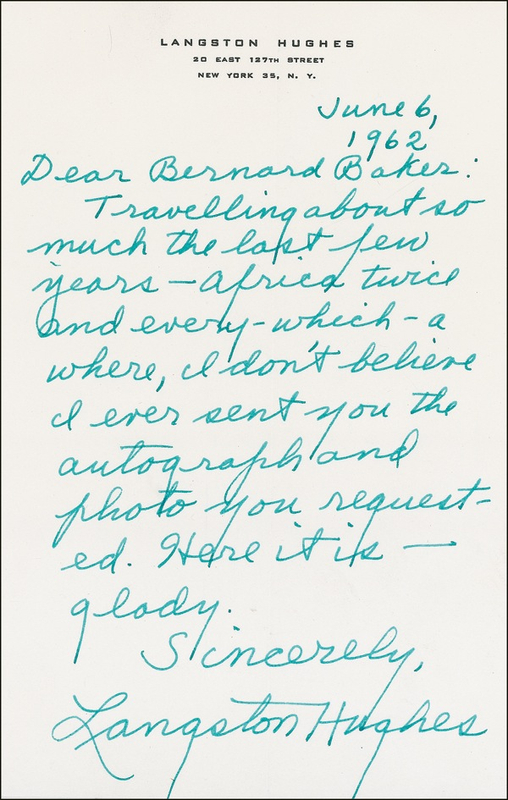 LANGSTON HUGHES
20 EAST 127TH STREET
NEW YORK 35, N. Y.
June 6,
1962
Dear Bernard Baker:
Travelling about so
much the last few
years — Africa twice
and every-which-a
where, I don't believe
I ever sent you the
autograph and
photo you request-
ed. Here it is —
glady.
Sincerely,
Langston Hughes